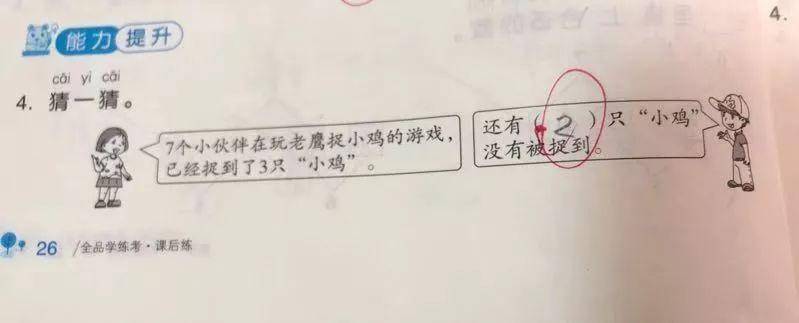 能力提升
4.
cāi yì cāi
4. 猜一猜。
7个小伙伴在玩老鹰捉小鸡的游戏，
已经捉到了3只“小鸡”。
还有（2）只“小鸡”
没有被捉到。
26 /全品学练考·课后练